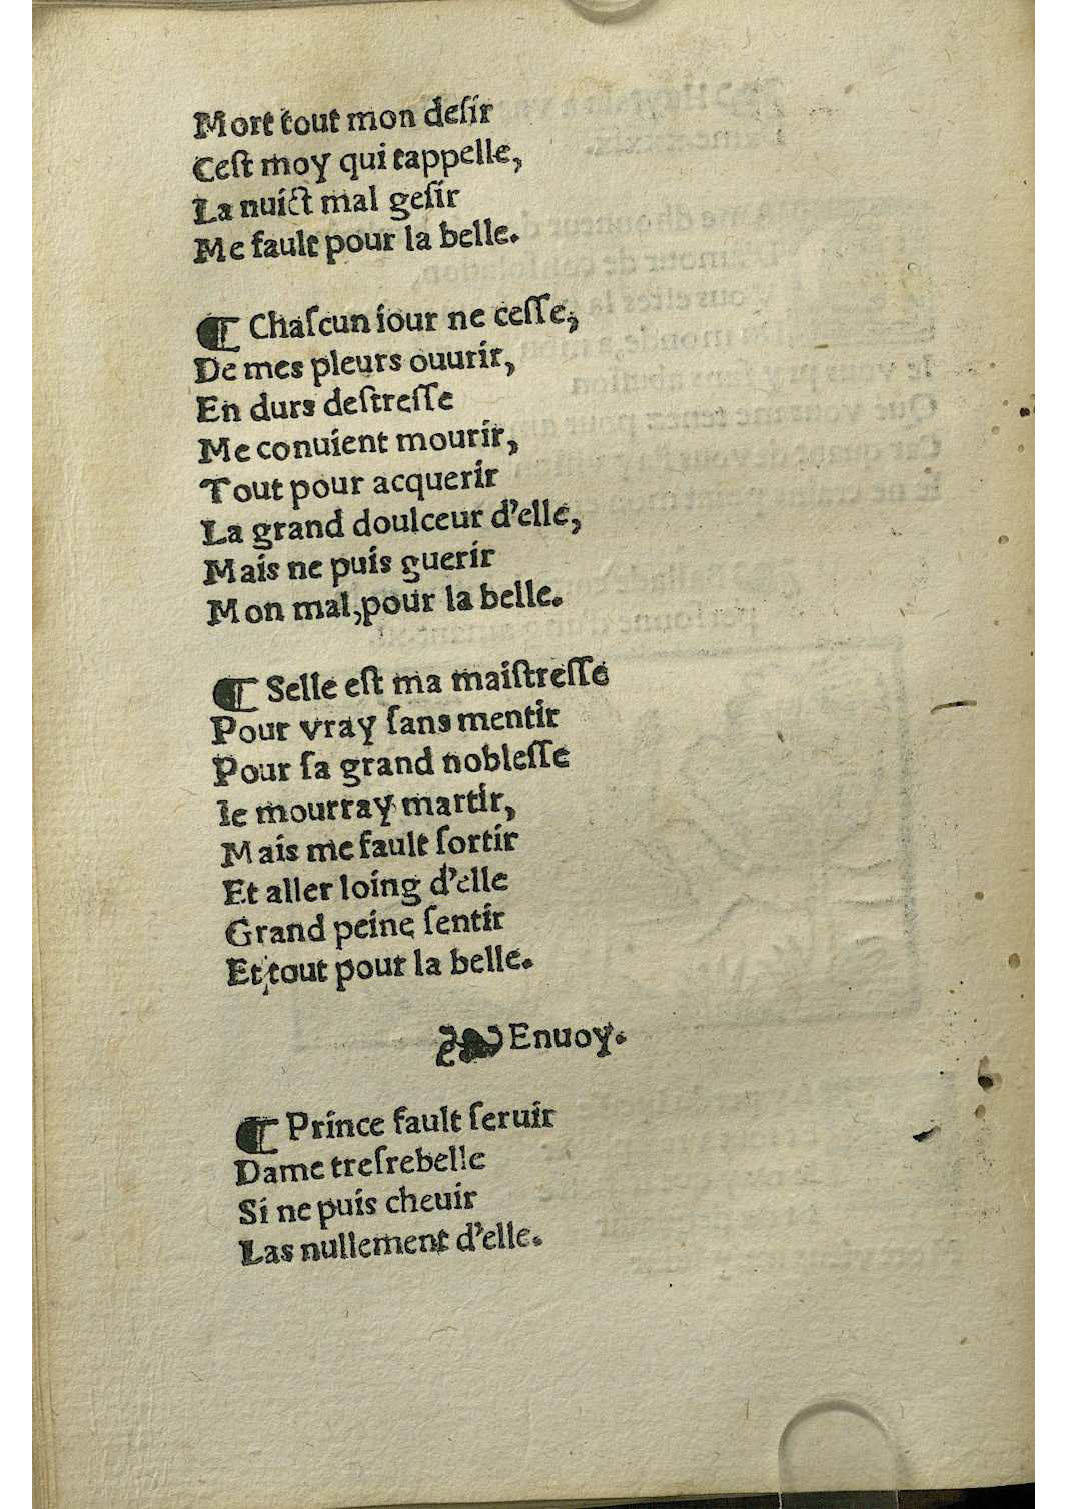 Mort tout mon deſir
Ceſt moy qui tappelle,
La nuict mal geſir
Me fault pour la belle.
¶ Chaſcun iour ne ceſſe,
De mes pleurs ouurir,
En durs deſtreſſe
Me conuient mourir,
Tout pour acquerir
La grand doulceur d'elle,
Mais ne puis guerir
Mon mal, pour la belle.
¶ Selle eſt ma maiſtreſſe
Pour vray ſans mentir
Pour ſa grand nobleſſe
Ie mourray martir,
Mais me fault ſortir
Et aller loing d'elle
Grand peine ſentir
Et tout pour la belle.
❧ Enuoy.
¶ Prince fault ſeruir
Dame treſrebelle
Si ne puis cheuir
Las nullement d'elle.